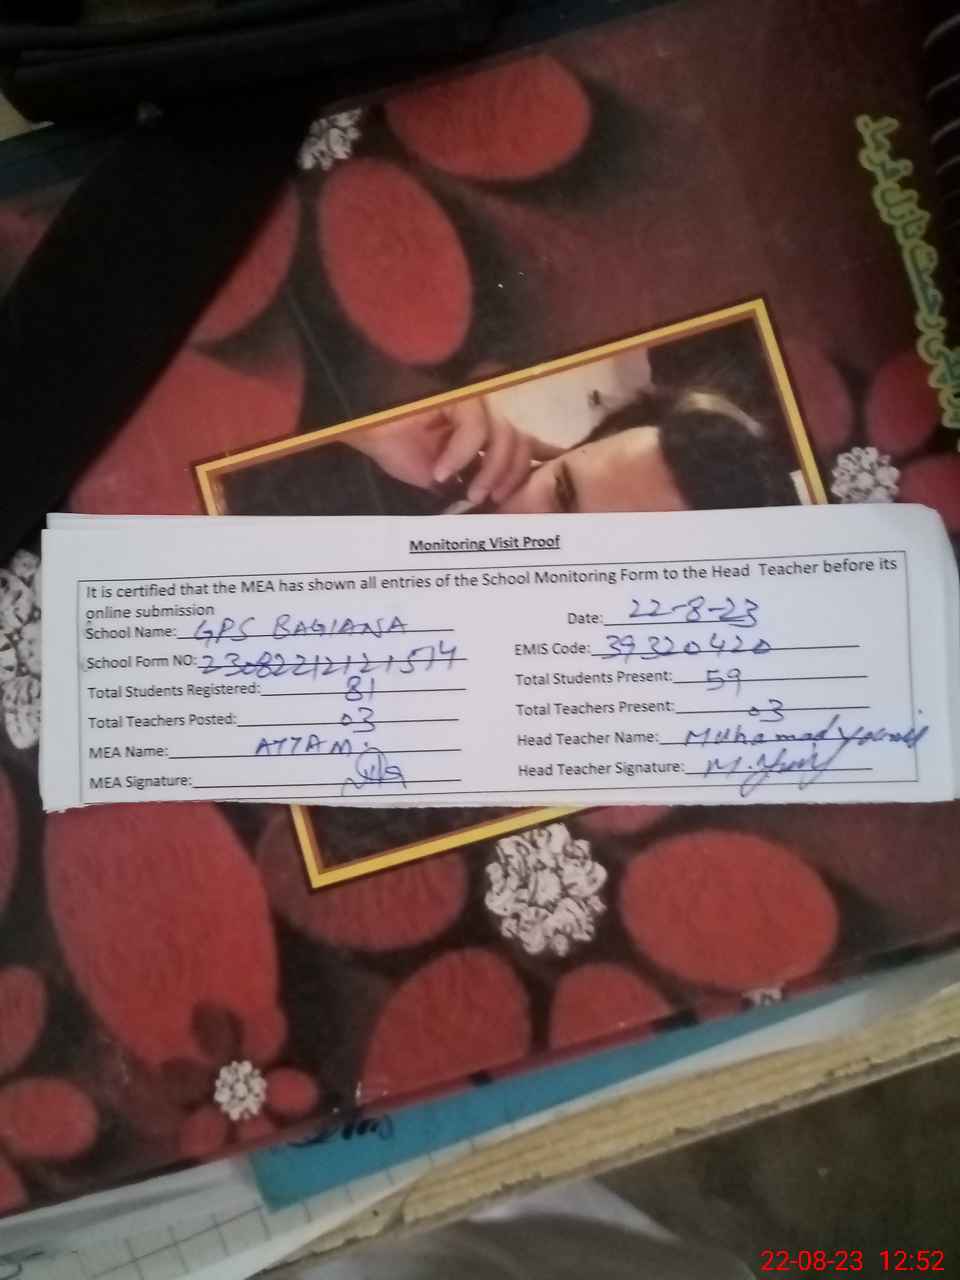 Monitoring Visit Proof
It is certified that the MEA has shown all entries of the School Monitoring Form to the Head Teacher before its
online submission
School Name: GPS BAGIANA Date: 22-8-23
School Form NO: 23082212121514 EMIS Code: 39320420
Total Students Registered: 81 Total Students Present: 59
Total Teachers Posted: 03 Total Teachers Present: 03
MEA Name: Head Teacher Name: Muhamad
MEA Signature: Head Teacher Signature: M.
22-08-23 12:52